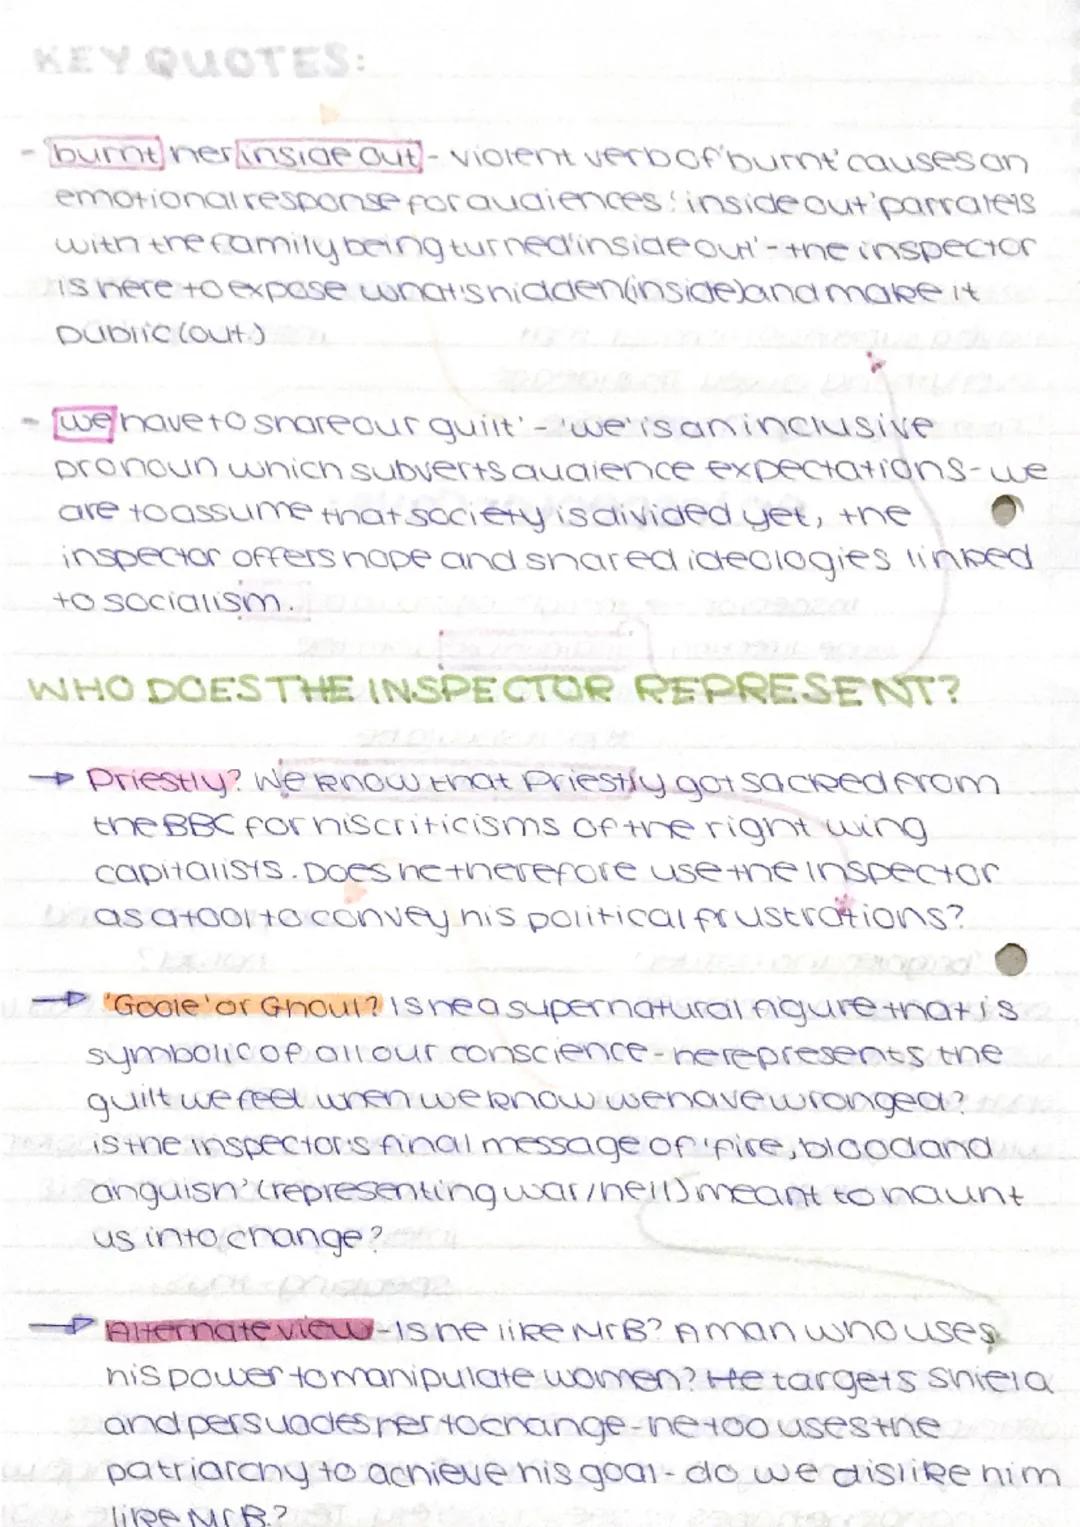 KEY QUOTES:
- burnt her inside out - violent verb of 'burnt' causes an
emotional response for audiences. 'inside out' parralels
with the family being turned 'inside out' - the inspector
is here to expose what is hidden (inside) and make it
public (out)
- we have to share our guilt' - 'we' is an inclusive
pronoun which subverts audience expectations - we
are to assume that society is divided yet, the
inspector offers hope and shared ideologies linked
to socialism.
WHO DOES THE INSPECTOR REPRESENT?
→ Priestly? We know that Priestly got sacked from
the BBC for his criticisms of the right wing
capitalists. Does he therefore use the Inspector
as a tool to convey his political frustrations?
→ 'Goole' or Ghoul? Is he a supernatural figure that is
symbolic of all our conscience - he represents the
guilt we feel when we know we have wronged?
is the inspector's final message of 'fire, blood and
anguish' (representing war/hell) meant to haunt
us into change?
→ Alternate view - Is he like Mr B? A man who uses
his power to manipulate women? He targets Shiela
and persuades her to change - he too uses the
patriarchy to achieve his goal - do we dislike him
like Mr B?